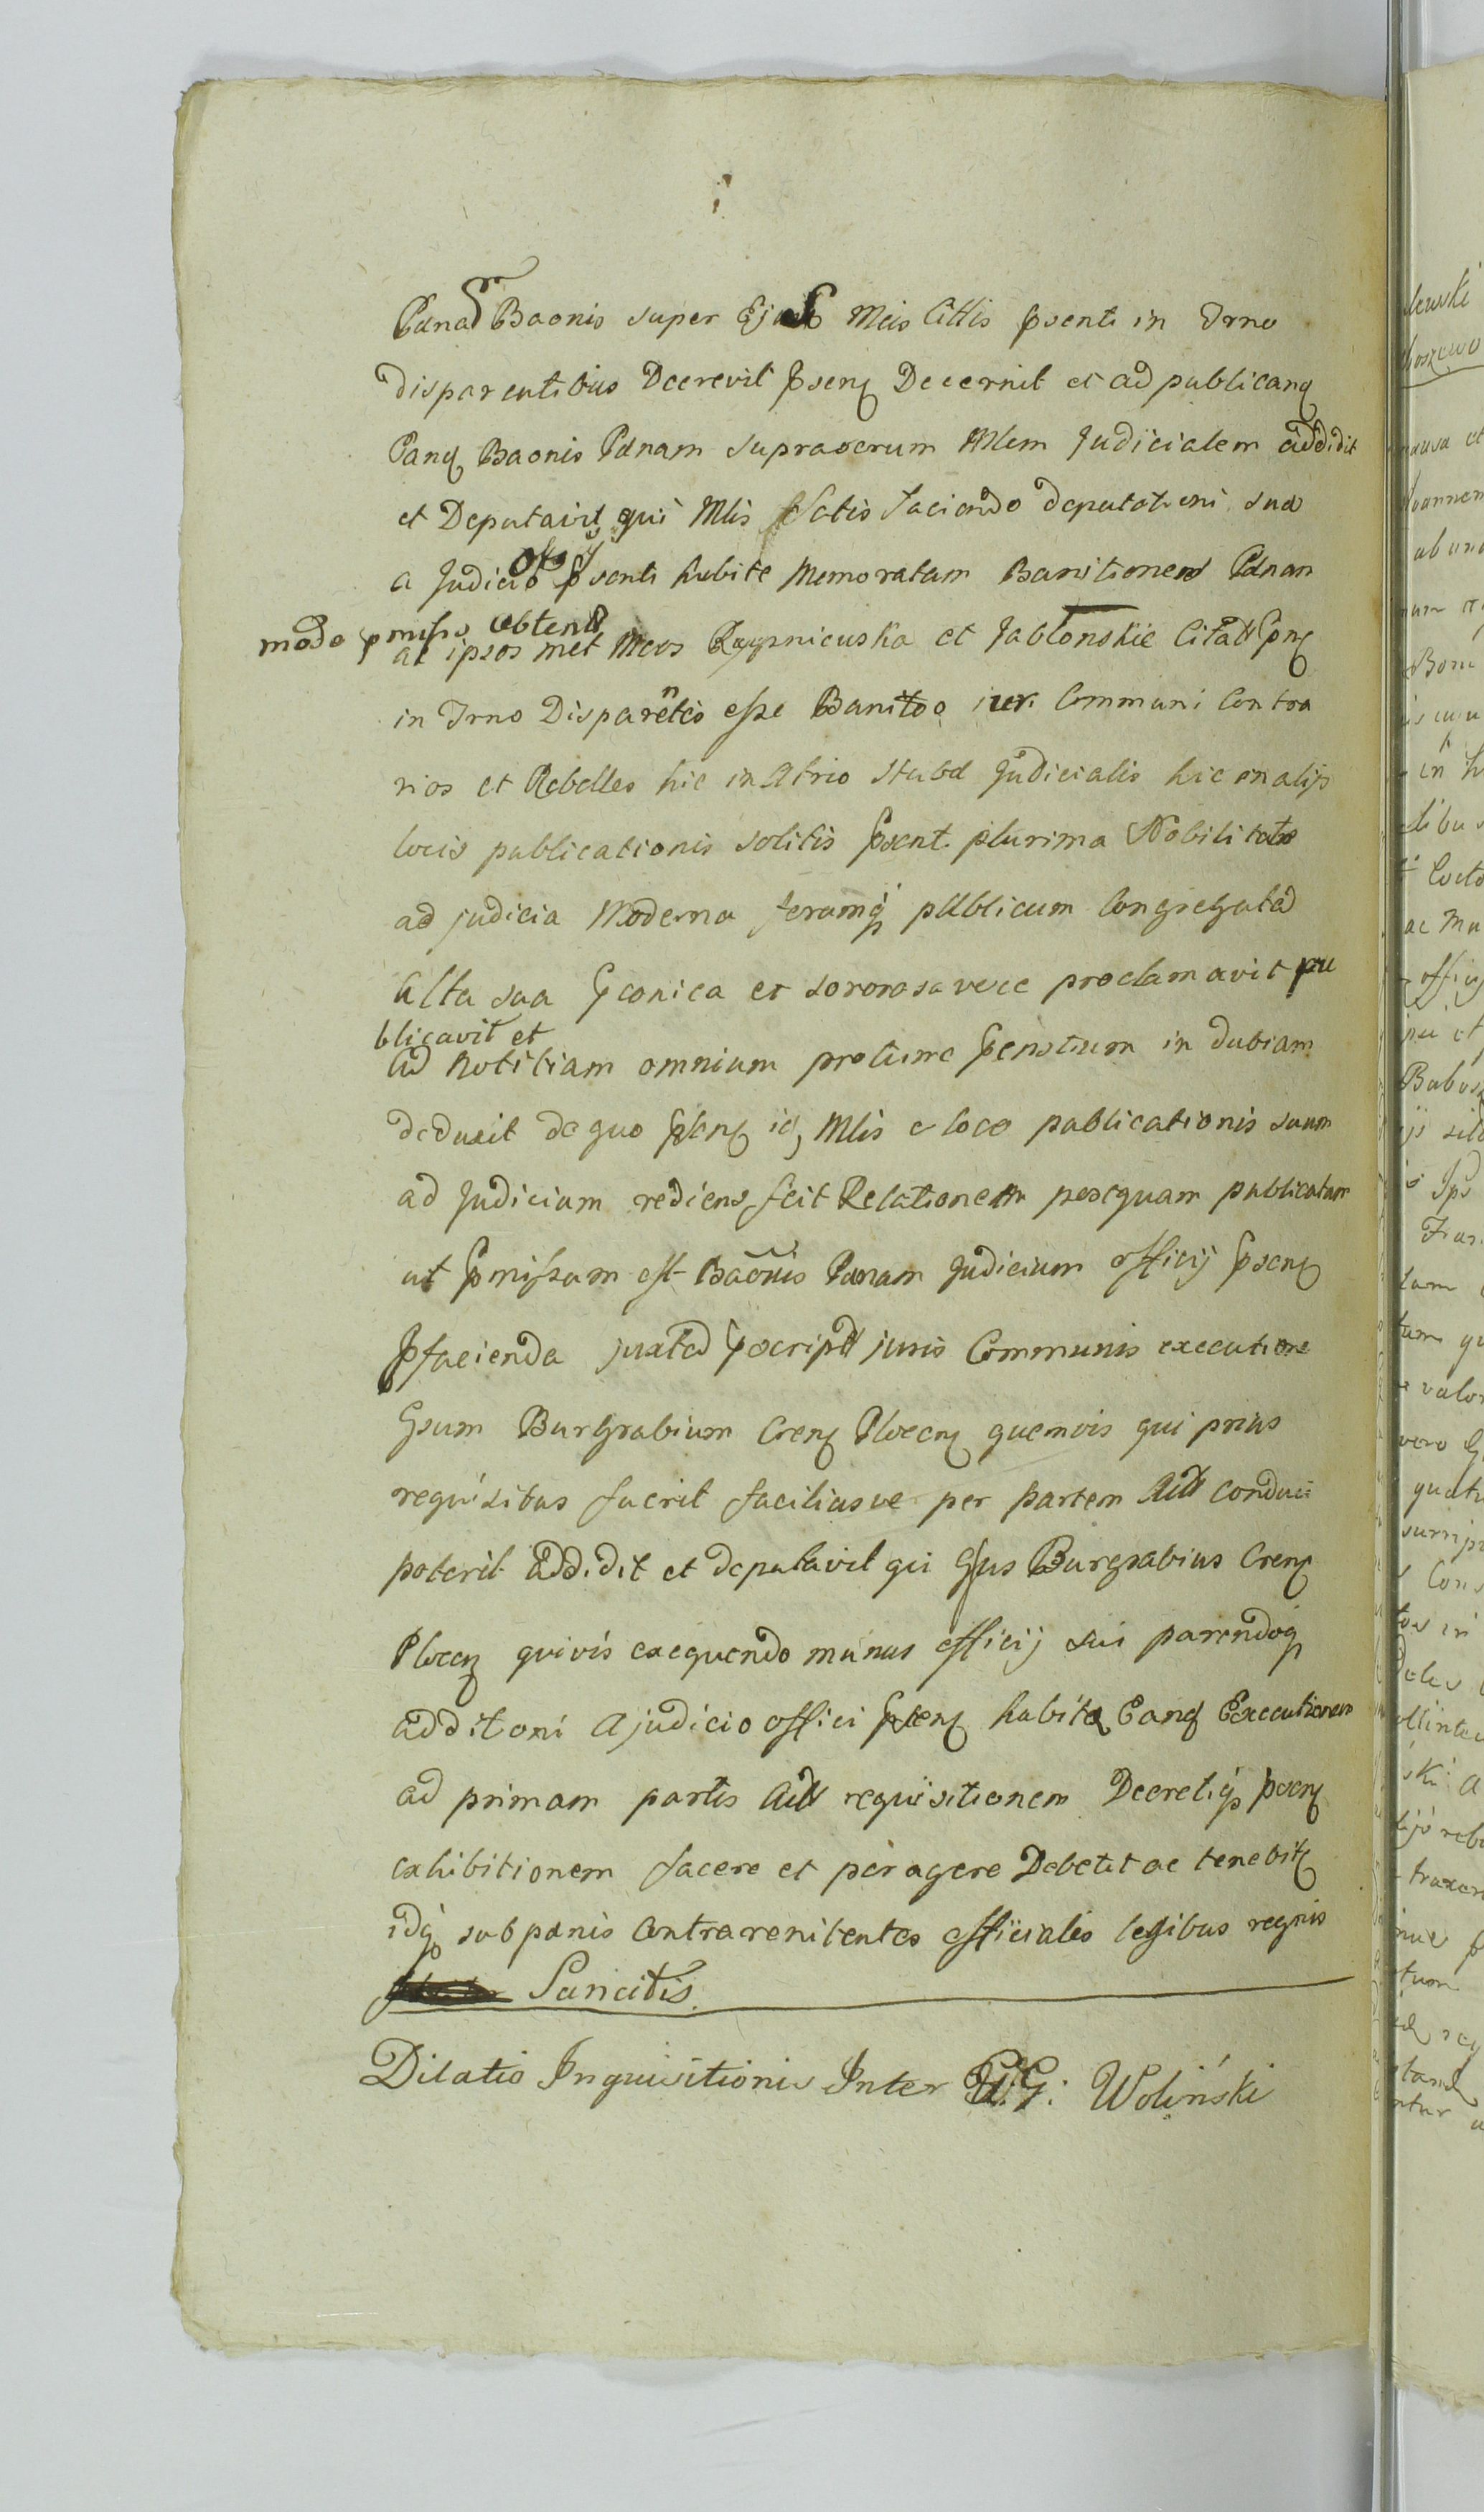 Pænas Baonis super Ejusd Mcis Cittis pnsenti in Trno
disparentibus Dcerevit psenq Decernit et ad publicanq
Panq Baonis Pænam supraserum Mlem Judicialem addidit
et Deputavit qui Mlis satis faciendo deputationi suæ
a Judicio offij psenti habitæ Memoratam Banitionem Pænam
modo pmisso obtent
ac ipsos met Mcos et Jabłonskie Citat
in Trno Disparentes esse Banitos iur. Communi Contra
rios et Rebelles hic in Atrio Stubæ Judicialis hic in alijs
locis publicationis solitis psent. plurima Nobilitate
ad judicia Moderna forumq publicum Congregata
Alta sua pconica et sonorosa voce proclamavit pu
blicavit et
ad Notitiam omnium protunc psentium in dubiam
deduxit de quo psenq idq Mlis e loco publicationis suum
ad Judicium rediens fecit Relationem postquam publicatam
ut pmissum est Baonis Pænam Judicium officij psenq
pfacienda juxta pscript juris Communis executione
Gsum Burgrabium Crenq Plocenq quemvis qui prius
requisitus fuerit faciliusve per partem Act conduci
poterit addidit et deputavit qui Gsus Burgrabius Crenq
Plocenq quivis exequendo munus officij sui parendoq
additioni a judicio offici psenq habitæ Eanq Executionem
ad primam partis Act requisitionem Decretiq psenq
exhibitionem facere et peragere Debebit ac tenebitq
idq sub pænis Contra renitentes officiales legibus regnis
Sancitis.
Dilatio Inquisitionis Inter GG: Woliński